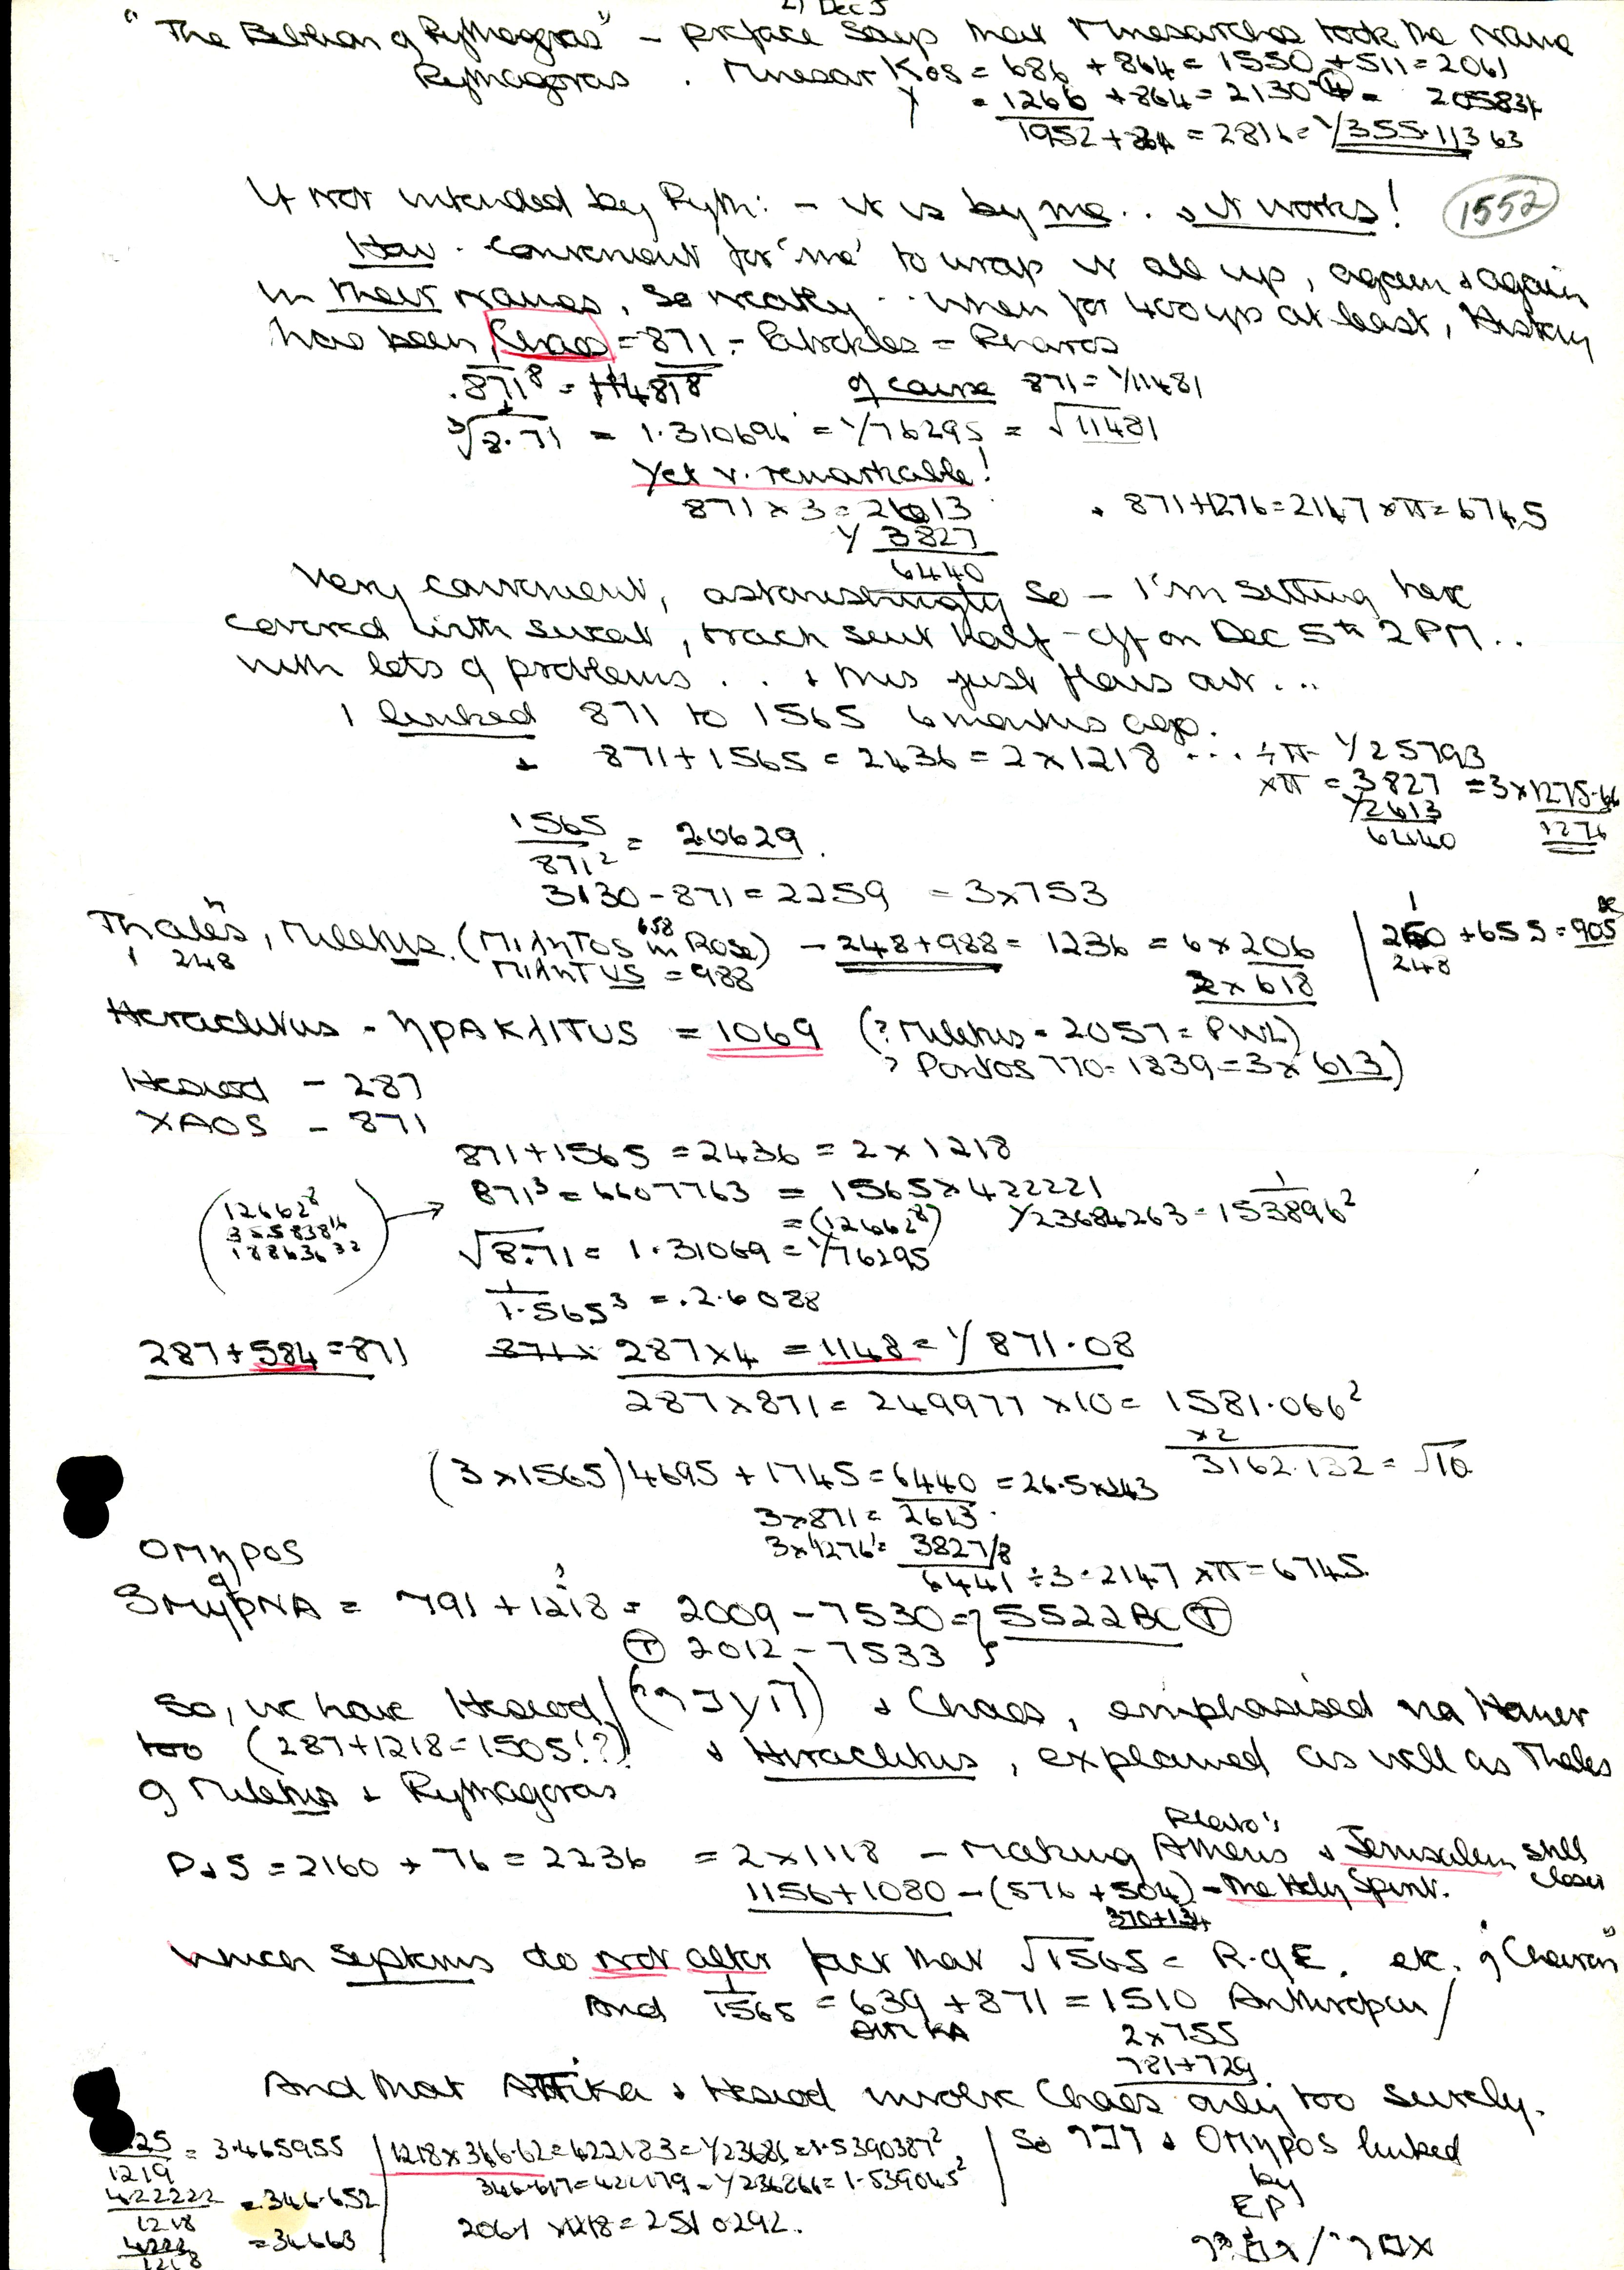 2) Dec 5
"The of Pythagoras" – preface says that Mnesarchos took the name
Pythagoras. Mnesar Kos = 686 + 864 = 1550 + 511 = 2061
X = 1266 + 864 = 2130
1952 + 864 = 2816 = 1/355.11363
If not intended by Pyth: – it is by me.. & it works!
1552
How convenient for 'me' to wrap it all up, again & again
in their names, so neatly .. when for 400 yrs at least, History
has been Chaos = 871 – Patrokles = Pharos
.871⁸ = of course 871 = 1/11481
³√8.71 = 1.310696 = 1/76295 = √11481
Yet v. remarkable!
871 x 3 = 2613 + 871+1276 = 2147 xπ = 6745
1/ 3827
6440
Very convenient, astonishingly so – I'm sitting here
covered with sweat, track suit half-off on Dec 5th 2PM..
with lots of problems . . & this just flows out...
I linked 871 to 1565 6 months ago.
+ 871+1565 = 2436 = 2x1218 ... ÷π 1/25793
xπ = 3827 = 3x1275.66
1/2613 1276
6440
1565/871² = 2.0629.
3130 – 871 = 2259 = 3x753
Thales, Miletus. (MIΛηTOS 658 in Rose) – 248+988 = 1236 = 6x206 | 250 + 655 = 905
248 MIΛηTUS = 988 2x618 248
Heraclitus – ηρΑΚΛITUS = 1069 (? Miletus = 2057 = PWL)
? Pontos 770 = 1839 = 3x613)
Hesiod – 287
XAOS – 871
871+1565 = 2436 = 2x1218
871³ = 6607763 = 1565x422221
(12662⁸ = (12662⁸) 1/23684263 = 153896²
355838¹⁶
188636³²) √8.71 = 1.31069 = 1/76295
1/1.565³ = .26088
287+584 = 871 871x 287x4 = 1148 = 1/871.08
287x871 = 249977 x10 = 1581.066²
x2
3162.132 = √10.
(3x1565) 4695 + 1745 = 6440 = 26.5x243
3x871 = 2613
3x1276 = 3827/8
6441 ÷3 = 2147 xπ = 6745.
OMηPOS
of
SMYPNA = 791+1218 = 2009 – 7530 = 5522BC (T)
(T) 2012 – 7533
So, we have Hesiod / & Chaos, emphasised via Homer
too (287+1218 = 1505!?) & Heraclitus, explained as well as Thales
of Miletus & Pythagoras
P&S = 2160 + 76 = 2236 = 2x1118 – making Plato's Athens & Jerusalem still closer
1156+1080 – (576 + 504) – The Holy Spirit.
370+134
Which systems do not alter fact that √1565 = R.of E. etc. of
And 1/1565 = 639 + 871 = 1510 Anthropou /
ATTIKA 2x755
781+729
And that ATTika & Hesiod involve Chaos only too surely.
/1219 = 3.465955 | 1218x346.62 = 422183 = 1/23686 = 1.5390387² | So & OMηPOS linked
422222/1218 = 346.652 346.617 = 422179 = 1/236866 = 1.539045² by
4222/1218 = 34663 2061 x1218 = 2510292. EP